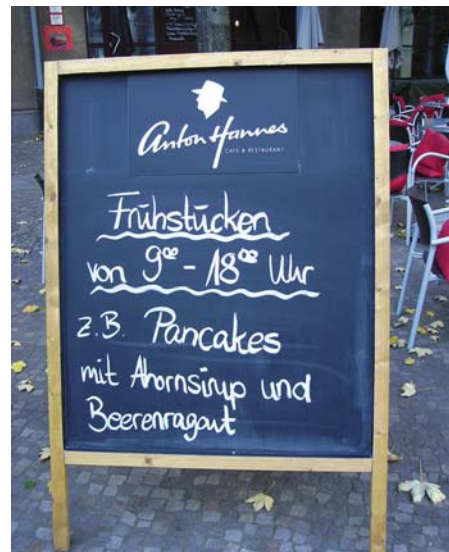 Anton Hannes
CAFE & RESTAURANT
Frühstücken
von 9⁰⁰ - 18⁰⁰ Uhr
z.B. Pancakes
mit Ahornsirup und
Beerenragout